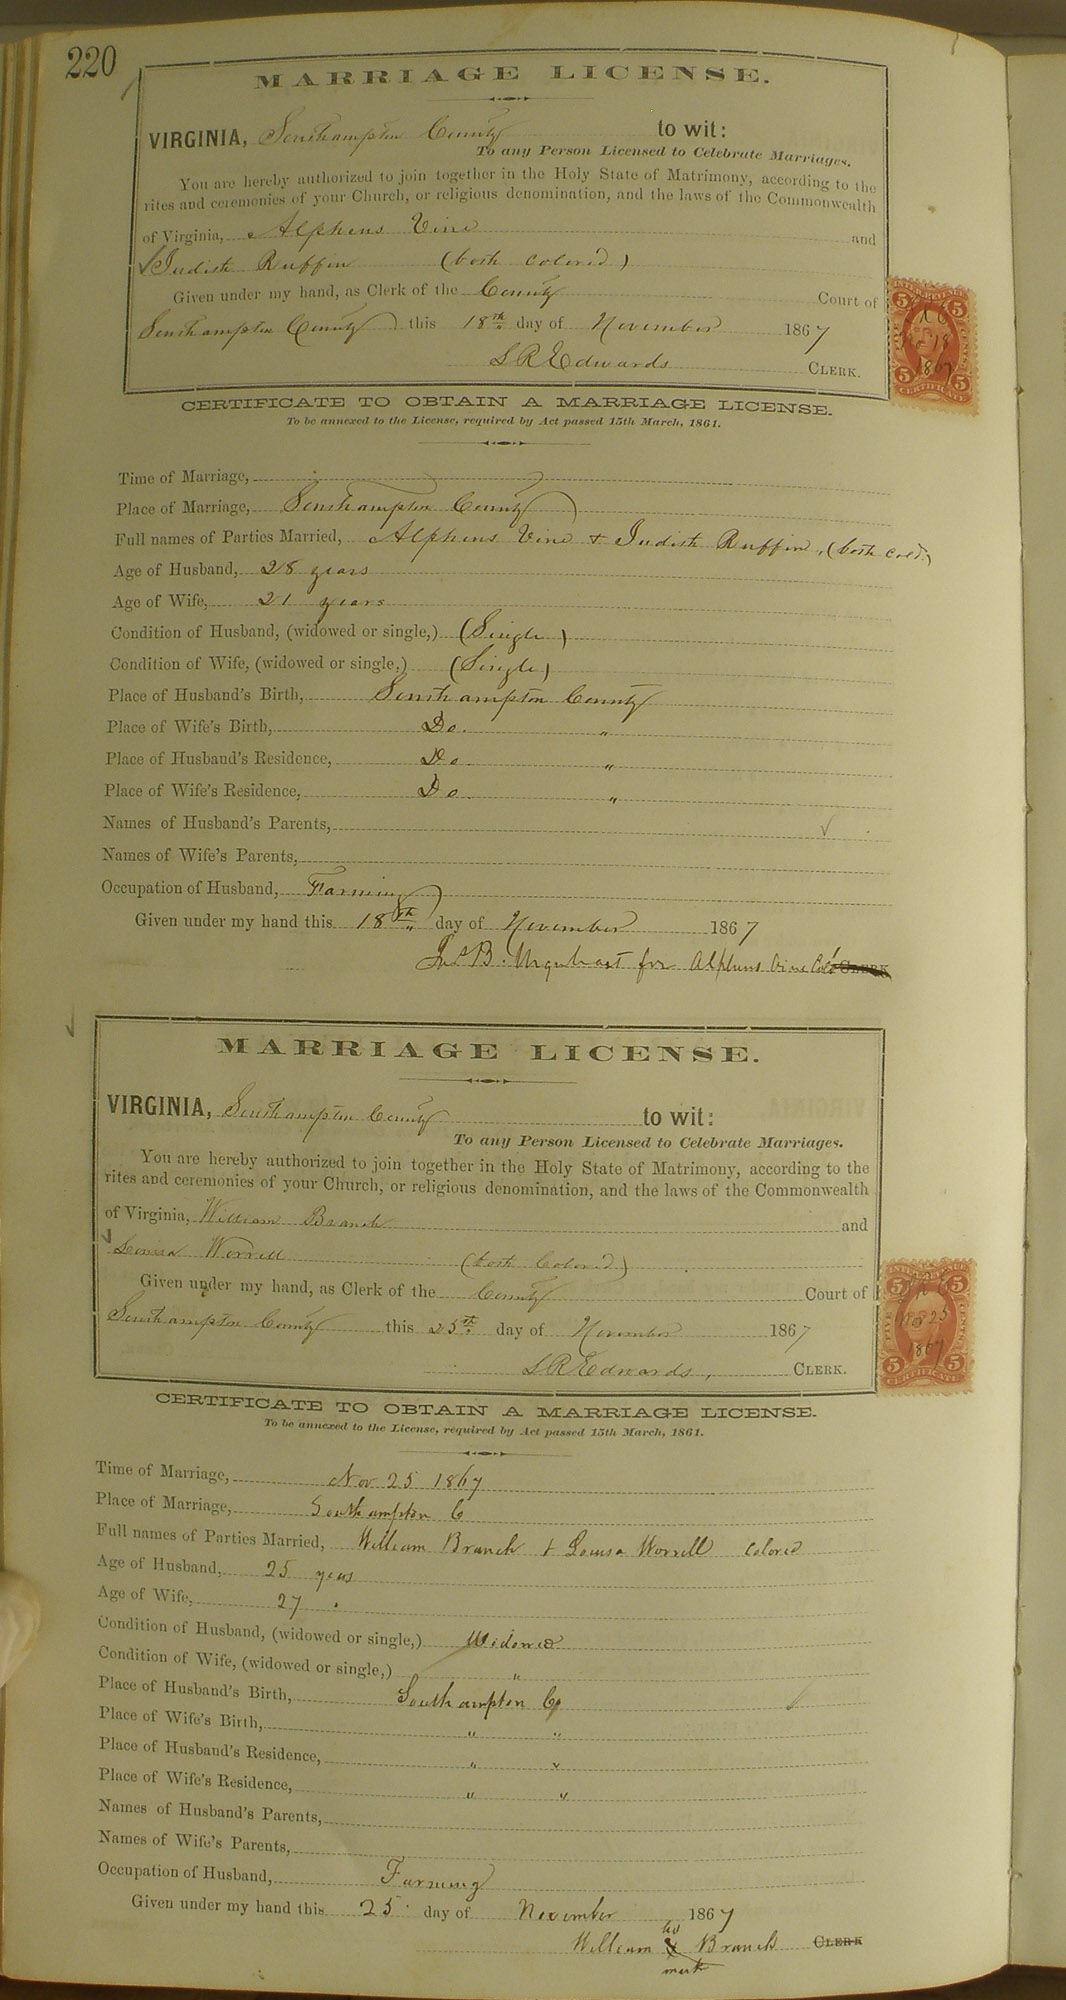 220
MARRIAGE LICENSE.
VIRGINIA, Southampton County to wit:
To any Person Licensed to Celebrate Marriages.
You are hereby authorized to join together in the Holy State of Matrimony, according to the
rites and ceremonies of your Church, or religious denomination, and the laws of the Commonwealth
of Virginia, Alpheus Vine and
Judith Ruffin (both colored)
Given under my hand, as Clerk of the County Court of
Southampton County this 18th day of November 1867
L R Edwards CLERK.
CERTIFICATE TO OBTAIN A MARRIAGE LICENSE.
To be annexed to the License, required by Act passed 15th March, 1861.
Time of Marriage,
Place of Marriage, Southampton County
Full names of Parties Married, Alpheus Vine & Judith Ruffin, (both cold.)
Age of Husband, 28 years
Age of Wife, 21 years
Condition of Husband, (widowed or single,) (Single)
Condition of Wife, (widowed or single,) (Single)
Place of Husband's Birth, Southampton County
Place of Wife's Birth, Do. "
Place of Husband's Residence, Do. "
Place of Wife's Residence, Do. "
Names of Husband's Parents,
Names of Wife's Parents,
Occupation of Husband, Farming
Given under my hand this 18th day of November 1867
B. Urquhart for Alpheus Vine Cold CLERK
MARRIAGE LICENSE.
VIRGINIA, Southampton County to wit:
To any Person Licensed to Celebrate Marriages.
You are hereby authorized to join together in the Holy State of Matrimony, according to the
rites and ceremonies of your Church, or religious denomination, and the laws of the Commonwealth
of Virginia, William Branch and
Louisa Worrell (both Colored)
Given under my hand, as Clerk of the County Court of
Southampton County this 25th day of November 1867
L R Edwards, CLERK.
CERTIFICATE TO OBTAIN A MARRIAGE LICENSE.
To be annexed to the License, required by Act passed 15th March, 1861.
Time of Marriage, Nov 25 1867
Place of Marriage, Southampton Co
Full names of Parties Married, William Branch & Louisa Worrell colored
Age of Husband, 25 years
Age of Wife, 27 "
Condition of Husband, (widowed or single,) Widowed
Condition of Wife, (widowed or single,) "
Place of Husband's Birth, Southampton Co
Place of Wife's Birth, " "
Place of Husband's Residence, " "
Place of Wife's Residence, " "
Names of Husband's Parents,
Names of Wife's Parents,
Occupation of Husband, Farming
Given under my hand this 25 day of November 1867
his
William X Branch CLERK
mark